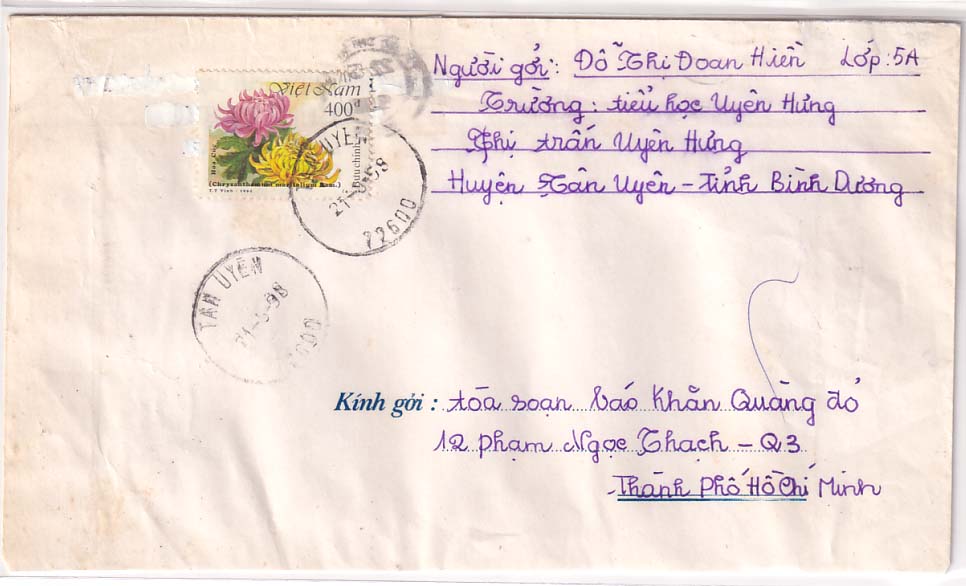 Người gởi: Đỗ Thị Đoan Hiền Lớp: 5A
Trường: tiểu học Uyên Hưng
Thị trấn Uyên Hưng
Huyện Tân Uyên - Tỉnh Bình Dương
Việt Nam
400đ
Bưu chính
Hoa Cúc
(Chrysanthemum morifolium Ram.)
TÂN UYÊN
72600
TÂN UYÊN
Kính gởi: tòa soạn báo Khăn Quàng đỏ
12 Phạm Ngọc Thạch - Q3
Thành Phố Hồ Chí Minh